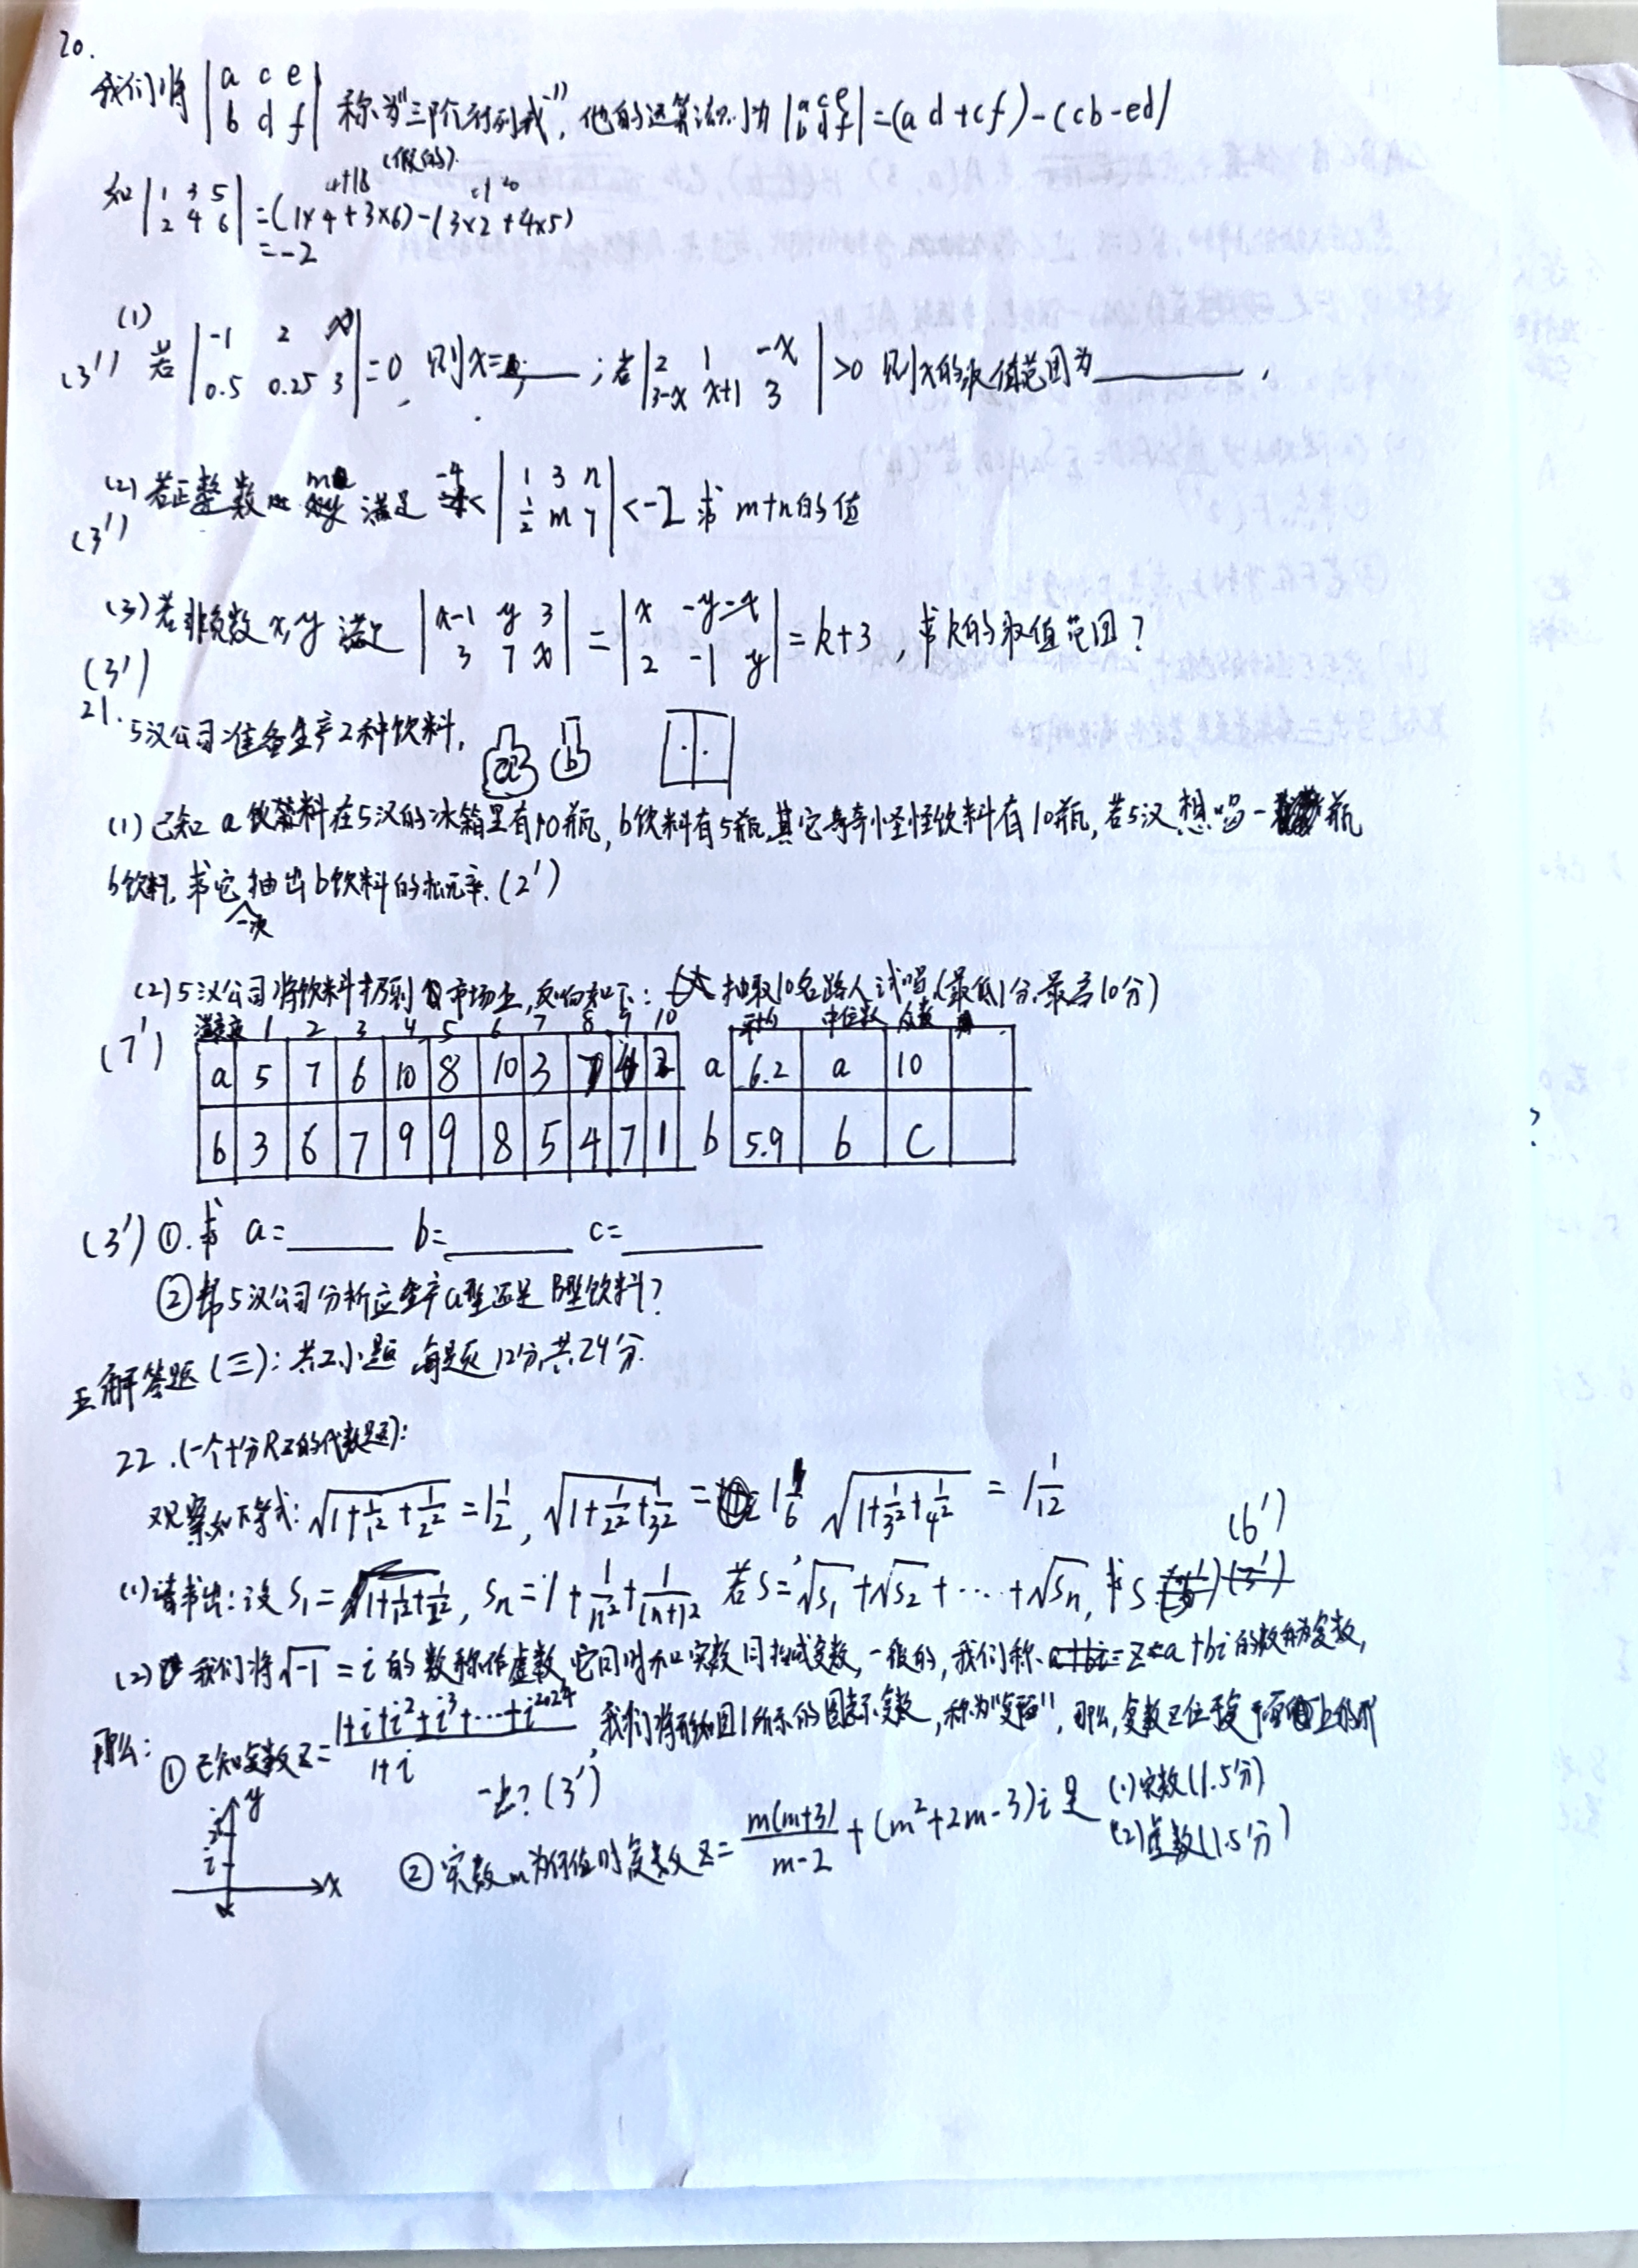 20.
我们将 |a c e / b d f| 称为"三阶行列式", 他的运算法则为 |a c e / b d f| = (ad+cf)-(cb-ed)
(假的)
4+18
如 |1 3 5 / 2 4 6| = (1×4+3×6)-(3×2+4×5)
=-2
(3') (1) 若 |-1 2 x / 0.5 0.25 3| =0 则x=____ ; 若 |2 1 -x / 3-x x+1 3| >0 则x的取值范围为________,
(3') (2) 若正整数 满足 -4 < |1 3 n / 1/2 m 7| <-2 求 m+n的值
(3') (3) 若非负数x,y 满足 |x-1 y 3 / 3 7 x| = |x -y -x / 2 -1 y| = k+3, 求k的取值范围?
21. 5汉公司准备生产2种饮料, a b
(1) 已知 a饮料在5汉的冰箱里有10瓶, b饮料有5瓶,其它奇奇怪怪饮料有10瓶, 若5汉想喝一瓶
b饮料, 求它一次抽出b饮料的概率. (2')
(2) 5汉公司将饮料扔到市场上,反响如下: 抽取10名路人试喝(最低1分,最高10分)
(7') 满意度 1 2 3 4 5 6 7 8 9 10 中位数 众数
a 5 7 6 10 8 10 3 7 4 2 a 6.2 a 10
b 3 6 7 9 9 8 5 4 7 1 b 5.9 b c
(3') ①.求 a=____ b=____ c=____
②帮5汉公司分析应生产a型还是B型饮料?
五.解答题(三):共2小题 每题12分,共24分.
22.(一个十分RZ的代数题):
观察如下等式: √(1+1/1²+1/2²) = 1 1/2, √(1+1/2²+1/3²) = 1 1/6 √(1+1/3²+1/4²) = 1 1/12
(1)请求出:设 S₁=1+1/1²+1/2², Sₙ=1+1/n²+1/(n+1)² 若S=√S₁+√S₂+…+√Sₙ, 求S (6')
(2) 我们将√-1=i的数称作虚数,它同时和实数同构成复数,一般的,我们称 z=a+bi的数称为复数,
那么: ①已知复数z=(1+i+i²+i³+…+i²⁰²⁴)/(1+i), 我们将形如图1所示的图表示复数,称为"复平面",那么,复数z位于复平面上的哪
一点?(3')
y i x
②实数m为何值时复数z=m(m+3)/(m-2)+(m²+2m-3)i是 (1)实数(1.5分)
(2)虚数(1.5分)